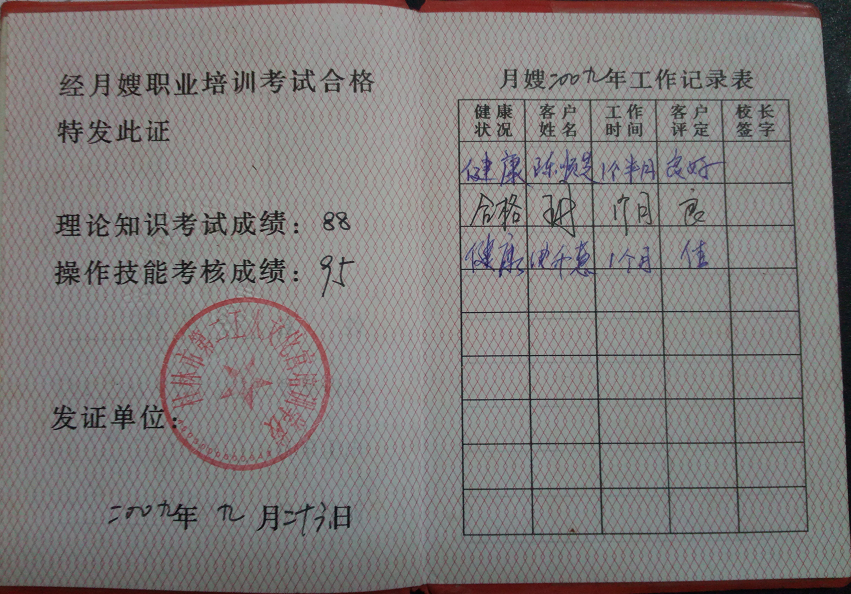 经月嫂职业培训考试合格
特发此证
理论知识考试成绩：88
操作技能考核成绩：95
桂林市第二工人文化宫培训学校
发证单位：
二00九年 九月二十六日
月嫂二00九年工作记录表
健康状况 客户姓名 工作时间 客户评定 校长签字
健康 陈 1个半月 良好
合格 月 良
健康 1个月 佳